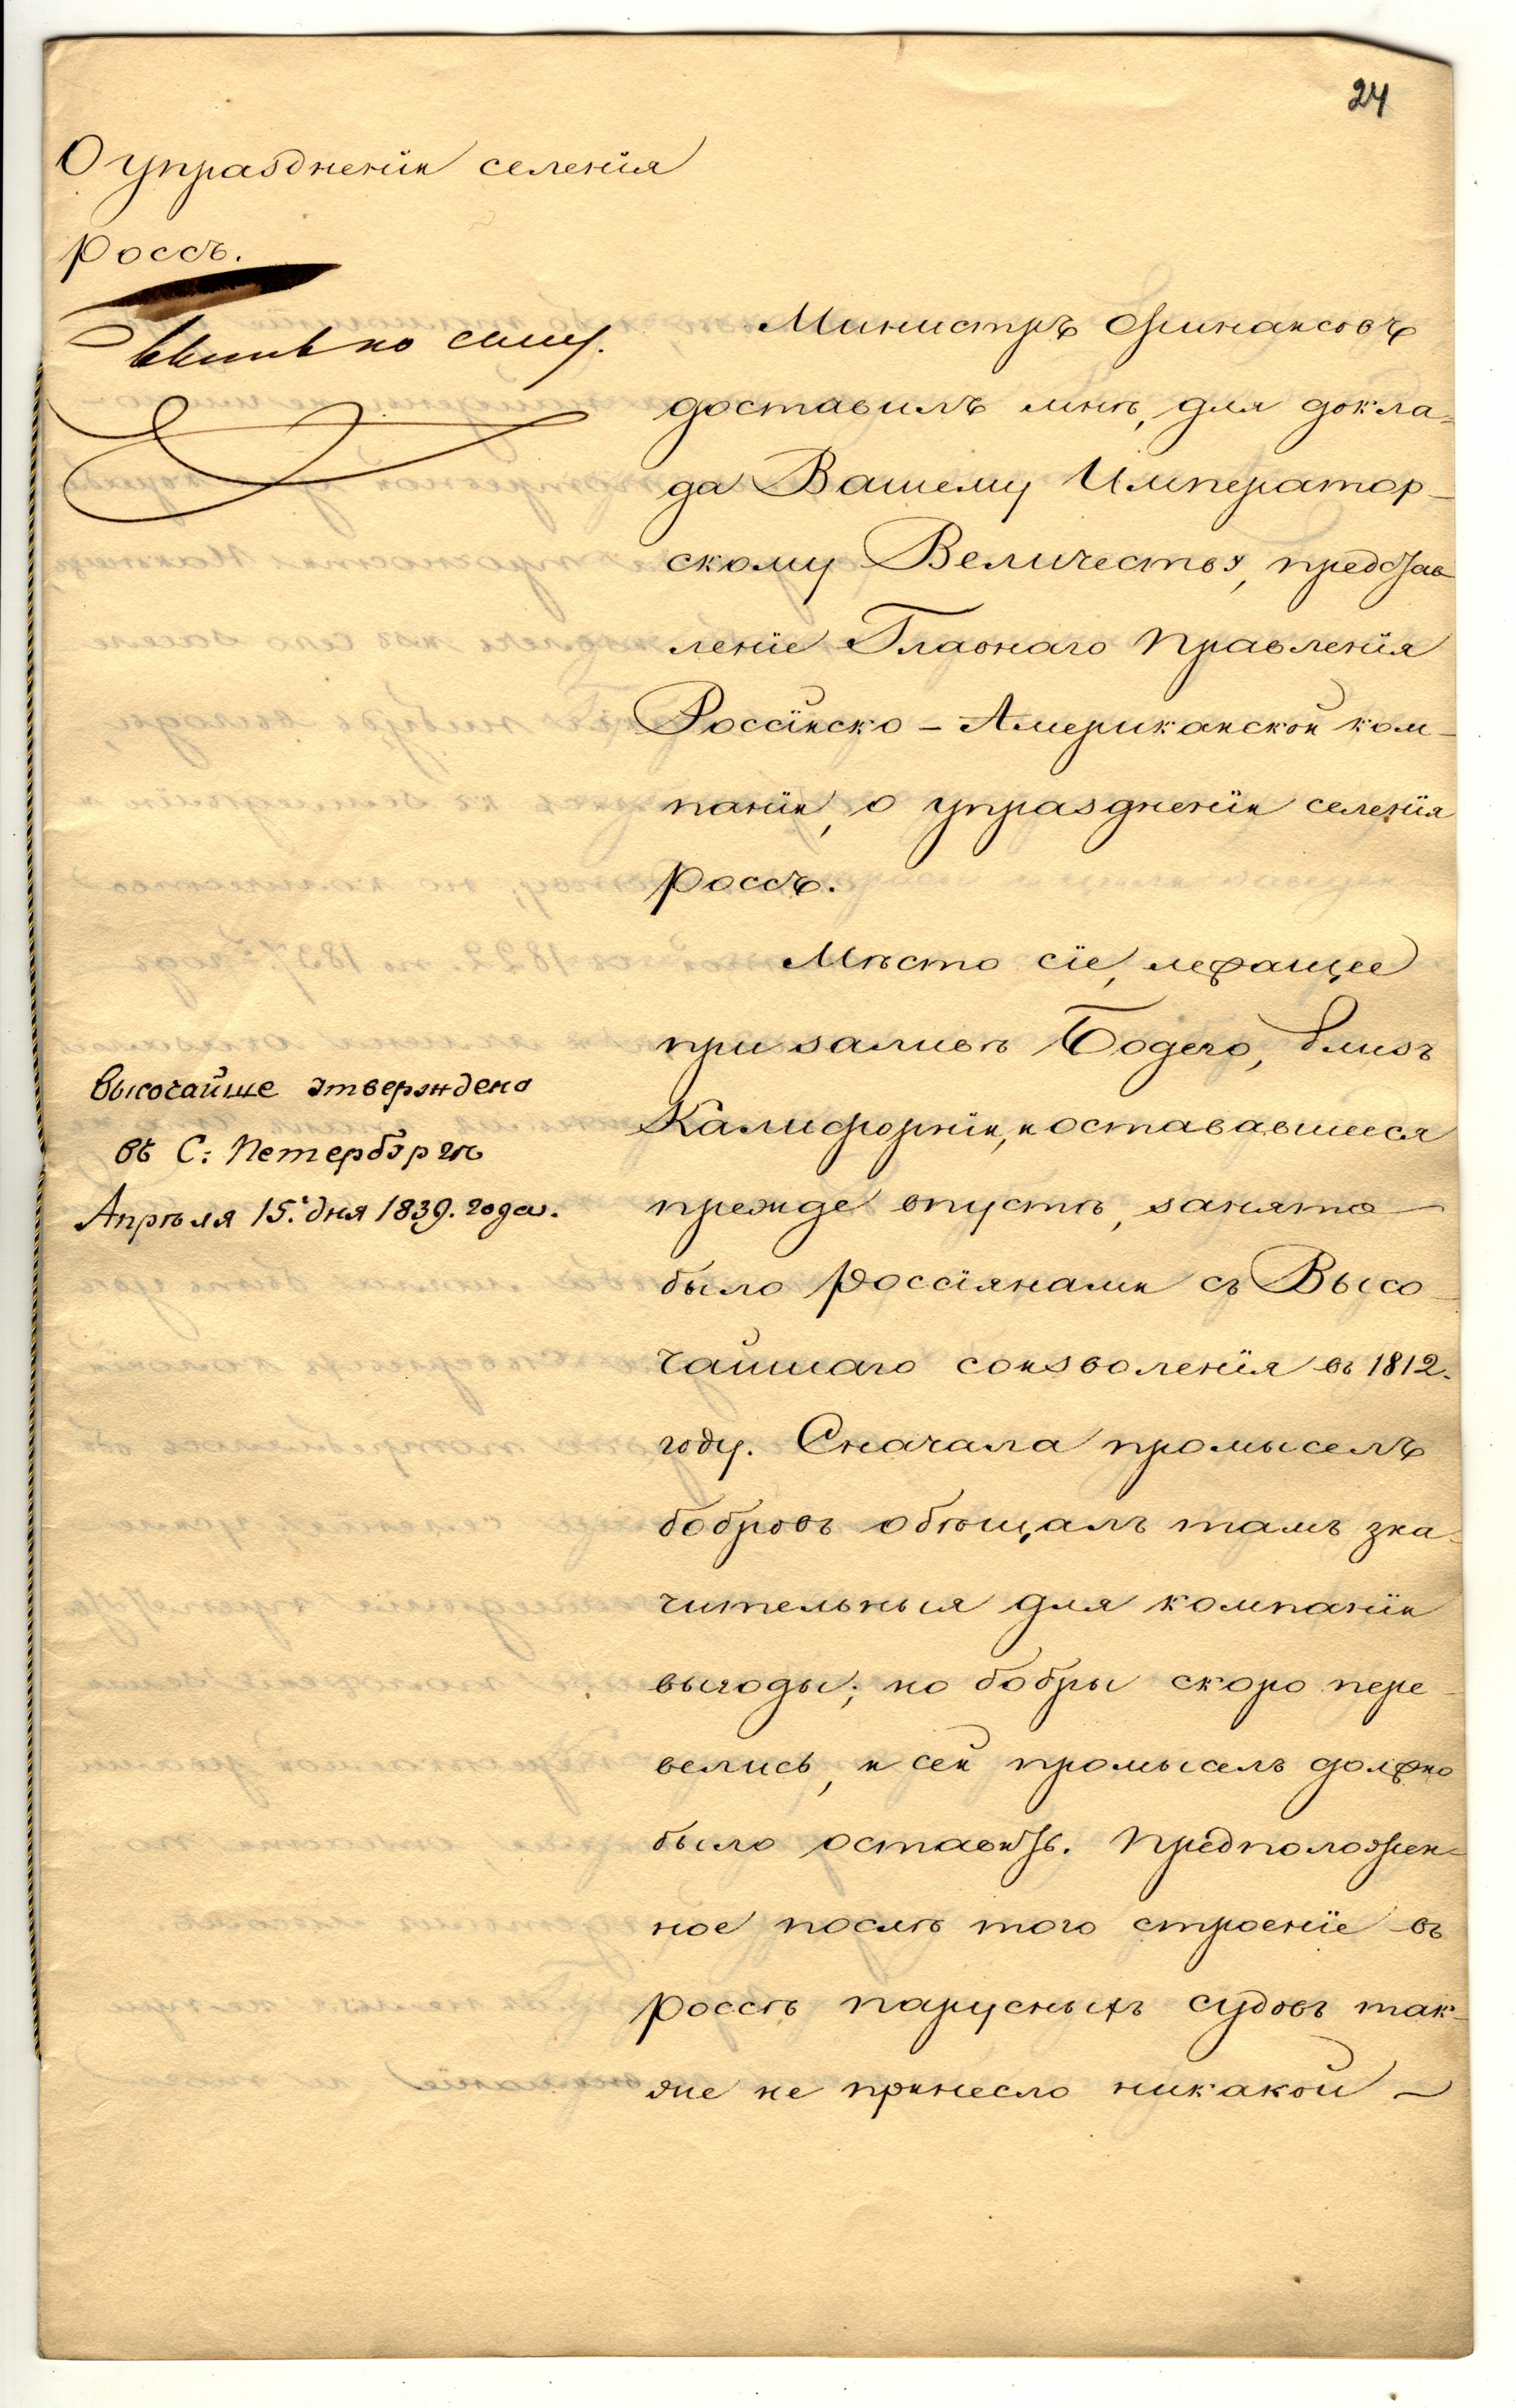 24
О упраздненіи селенія
Россъ.
Быть по сему.
Министръ Финансовъ
доставилъ мнѣ, для докла-
да Вашему Император-
скому Величеству, представ
леніе Главнаго Правленія
Россійско-Американской ком-
паніи, о упраздненіи селенія
Россъ.
Мѣсто сіе, лежащее
при заливѣ Бодего, близъ
Калифорніи, и остававшееся
прежде впустѣ, занято
было Россіянами съ Высо-
чайшаго соизволенія въ 1812.
году. Сначала промыселъ
бобровъ обѣщалъ тамъ зна-
чительныя для компаніи
выгоды; но бобры скоро пере-
велись, и сей промыселъ должно
было оставить. Предположен-
ное послѣ того строеніе въ
Россѣ парусныхъ судовъ так-
же не принесло никакой
Высочайше утверждено
въ С: Петербургѣ
Апрѣля 15. дня 1839. года.